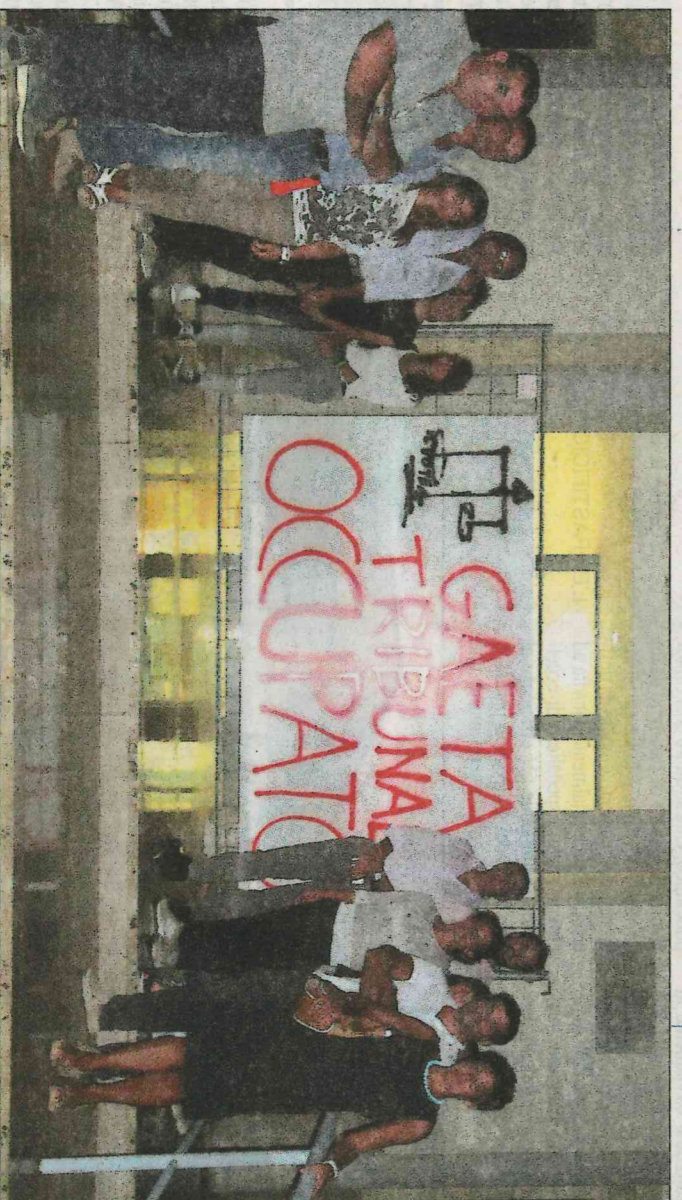 GAETA
TRIBUNAL
OCCUPATO